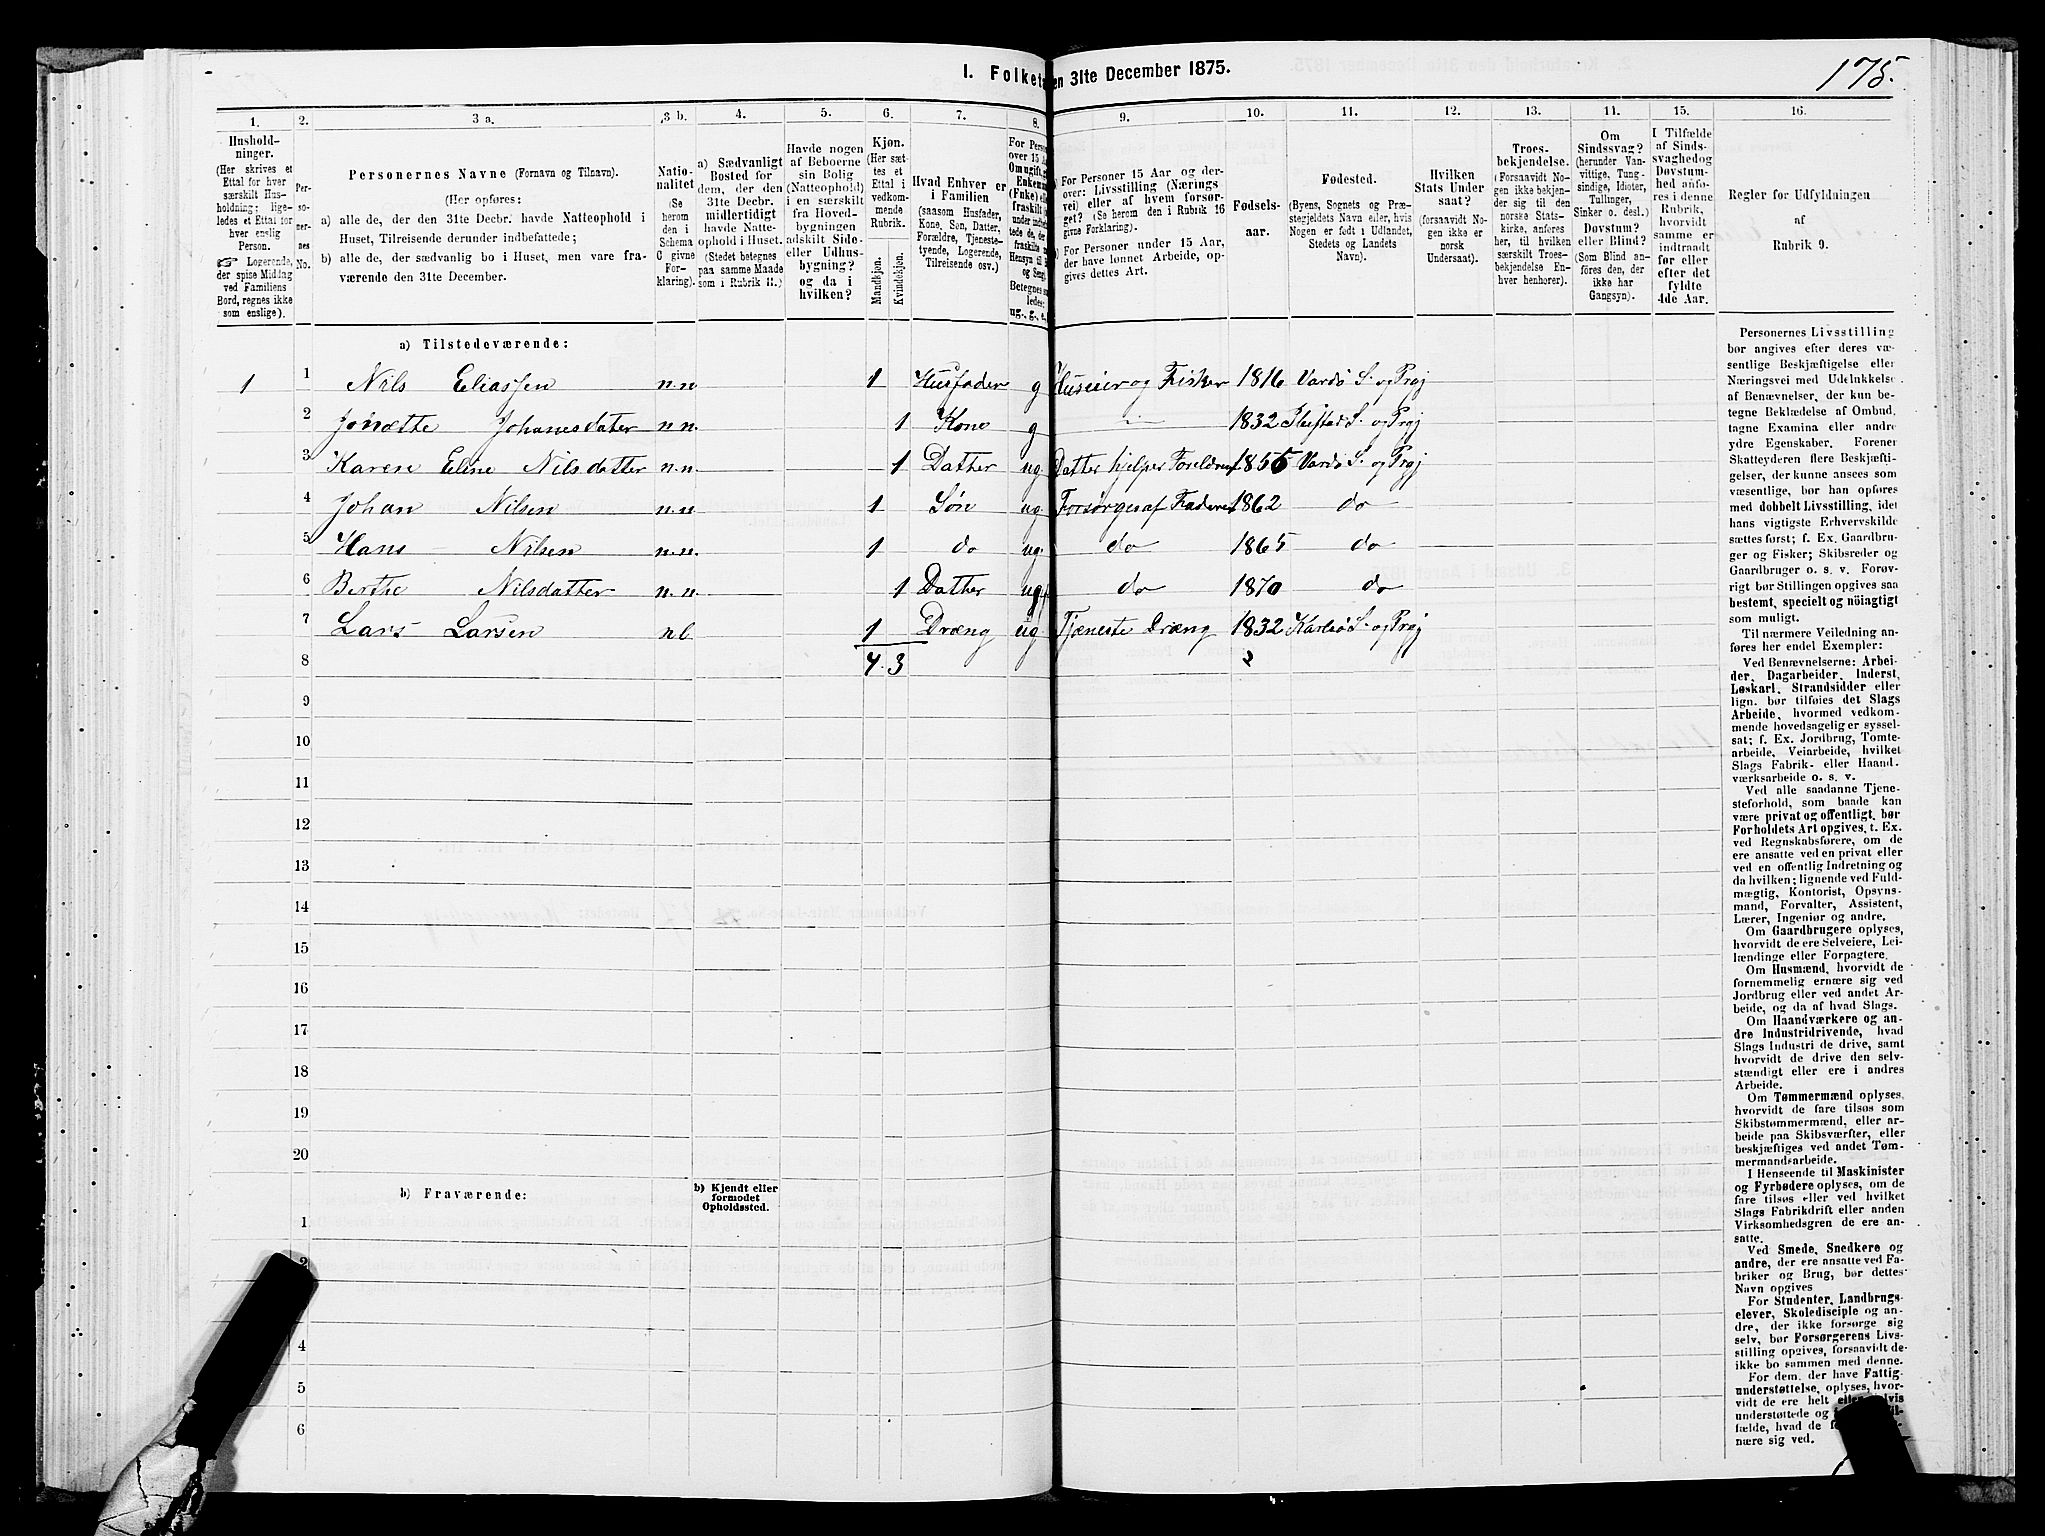 I. Folketæ
en 31te December 1875.
175.
1. 2. 3 a. 3 b. 4. 5. 6. 7. 8. 9. 10. 11. 12. 13. 11. 15. 16.
Hushold-
ninger.
(Her skrives et
Ettal for hver
særskilt Hus-
holdning; lige-
ledes et Ettal for
hver enslig
Person.
☞ Logerende,
der spise Middag
ved Familiens
Bord, regnes ikke
som enslige).
Per-
so-
ner-
nes
No.
Personernes Navne (Fornavn og Tilnavn).
(Her opføres:
a) alle de, der den 31te Decbr. havde Natteophold i
Huset, Tilreisende derunder indbefattede;
b) alle de, der sædvanlig bo i Huset, men vare fra-
værende den 31te December.
Natio-
nalitet
(Se
herom
den i
Schema
C givne
For-
klaring).
a) Sædvanligt
Bosted for
dem, der den
31te Decbr.
midlertidigt
havde Natte-
ophold i Huset.
(Stedet betegnes
paa samme Maade
som i Rubrik 11.)
Havde nogen
af Beboerne
sin Bolig
(Natteophold)
i en særskilt
fra Hoved-
bygningen
adskilt Side-
eller Udhus-
bygning?
og da i
hvilken?
Kjøn.
(Her sæt-
tes et
Ettal i
vedkom-
mende
Rubrik.
Mandkjøn.
Kvindekjøn.
Hvad Enhver er
i Familien
(saasom Husfader,
Kone, Søn, Datter,
Forældre, Tjeneste-
tyende, Logerende,
Tilreisende osv.)
For Person
over 15 A
Om ugift, g
Enkem
(Enke) el
fraskilt
ug., g., e.,
For Personer 15 Aar og der-
over: Livsstilling (Nærings
vei) eller af hvem forsør-
get? (Se herom den i Rubrik 16
givne Forklaring).
For Personer under 15 Aar,
der have lønnet Arbeide, op-
gives dettes Art.
Fødsels-
aar.
Fødested.
(Byens, Sognets og Præ-
stegjeldets Navn eller, hvis
Nogen er født i Udlandet,
Stedets og Landets
Navn).
Hvilken
Stats Under
saat?
(forsaavidt No-
gen ikke er
norsk
Undersaat).
Troes-
bekjendelse.
(Forsaavidt No-
gen ikke bekjen-
der sig til den
norske Stats-
kirke, anføres
her, til hvilken
særskilt Troes-
bekjendelse En-
hver henhører).
Om
Sindssvag?
(herunder Van-
vittige, Tung-
sindige, Idioter,
Tullinger,
Sinker o. desl.)
Døvstum?
eller Blind?
(Som Blind an-
føres den, der
ikke har
Gangsyn).
I Tilfælde
af Sinds-
svaghedog
Døvstum-
hed anfø-
res i denne
Rubrik,
hvorvidt
samme er
indtraadt
før eller
efter det
fyldte
4de Aar.
Regler for Udfyldningen
af
Rubrik 9.
a) Tilstedeværende:
1 1 Nils Eliassen n.n 1 Husfader g Huseier og Fisker 1816 Vardø S. og Prgj
2 Jonette Johanesdater n.n. 1 Kone g 1832 S. og Prgj
3 Karen Eline Nilsdatter n.n. 1 Dather ug Datter hjelper Foreldrene 1855 Vardø S. og Prgj
4 Johan Nilsen n.n. 1 Søn ug Forsørges af Faderen 1862 do
5 Hans Nilsen n.n. 1 do ug. do 1865 do
6 Berthe Nilsdatter n.n. 1 Dather ug. do 1870 do
7 Lars Larsen n l 1 Dræng ug Tjeneste Dræng 1832 Karlsø S. og Prgj
8 4 3 2
9
10
11
12
13
14
15
16
17
18
19
20
b) Fraværende:
b) Kjendt eller
formodet
Opholdssted.
1
2
4
5
6
Personernes Livsstilling
bør angives efter deres væ-
sentlige Beskjæftigelse eller
Næringsvei med Udelukkelse
af Benævnelser, der kun be-
tegne Beklædelse af Ombud,
tagne Examina eller andre
ydre Egenskaber. Forener
Skatteyderen flere Beskjæfti-
gelser, der kunne ansees som
væsentlige, bør han opføres
med dobbelt Livsstilling, idet
hans vigtigste Erhvervskilde
sættes først; f. Ex. Gaardbru-
ger og Fisker; Skibsreder og
Gaardbruger o. s. v. Forøv-
rigt bør Stillingen opgives saa
bestemt, specielt og nöiagtigt
som muligt.
Til nærmere Veiledning an-
føres her endel Exempler:
Ved Benævnelserne: Arbei-
der, Dagarbeider, Inderst,
Løskarl, Strandsidder eller
lign. bør tilføies det Slags
Arbeide, hvormed vedkom-
mende hovedsagelig er syssel-
sat; f. Ex. Jordbrug, Tomte-
arbeide, Veiarbeide, hvilket
Slags Fabrik- eller Haand-
værksarbeide o. s. v.
Ved alle saadanne Tjene-
steforhold, som baade kan
være privat og offentligt, bør
Forholdets Art opgives, t. Ex.
ved Regnskabsførere, om de
ere ansatte ved en privat eller
ved en offentlig Indretning og
da hvilken; lignende ved Fuld-
mægtig, Kontorist, Opsyns-
mand, Forvalter, Assistent,
Lærer, Ingeniør og andre.
Om Gaardbrugere oplyses,
hvorvidt de ere Selveiere, Lei-
lændinge eller Forpagtere.
Om Husmænd, hvorvidt de
fornemmelig ernære sig ved
Jordbrug eller ved andet Ar-
beide, og da af hvad Slags.
Om Haandværkere og an-
dre Industridrivende, hvad
Slags Industri de drive, samt
hvorvidt de drive den selv-
stændigt eller ere i andres
Arbeide.
Om Tømmermænd oplyses,
hvorvidt de fare tilsøs som
Skibstømmermænd, eller ar-
beide paa Skibsværfter, eller
beskjæftiges ved andet Tøm-
mermandsarbeide.
I Henseende til Maskinister
og Fyrbødere oplyses, om de
fare tilsøs eller ved hvilket
Slags Fabrikdrift eller anden
Virksomhedsgren de ere an-
satte.
Ved Smede, Snedkere og
andre, der ere ansatte ved Fa-
briker og Brug, bør dettes
Navn opgives
For Studenter, Landbrugs-
elever, Skoledisciple og an-
dre, der ikke forsørge sig
selv, bør Forsørgerens Livs-
stilling opgives, forsaavidt de
ikke bo sammen med denne.
For dem, der have Fattig-
understøttelse, oplyses, hvor-
vidt de ere helt eller
understøttede og
fælde, hvad de
nære sig ved.